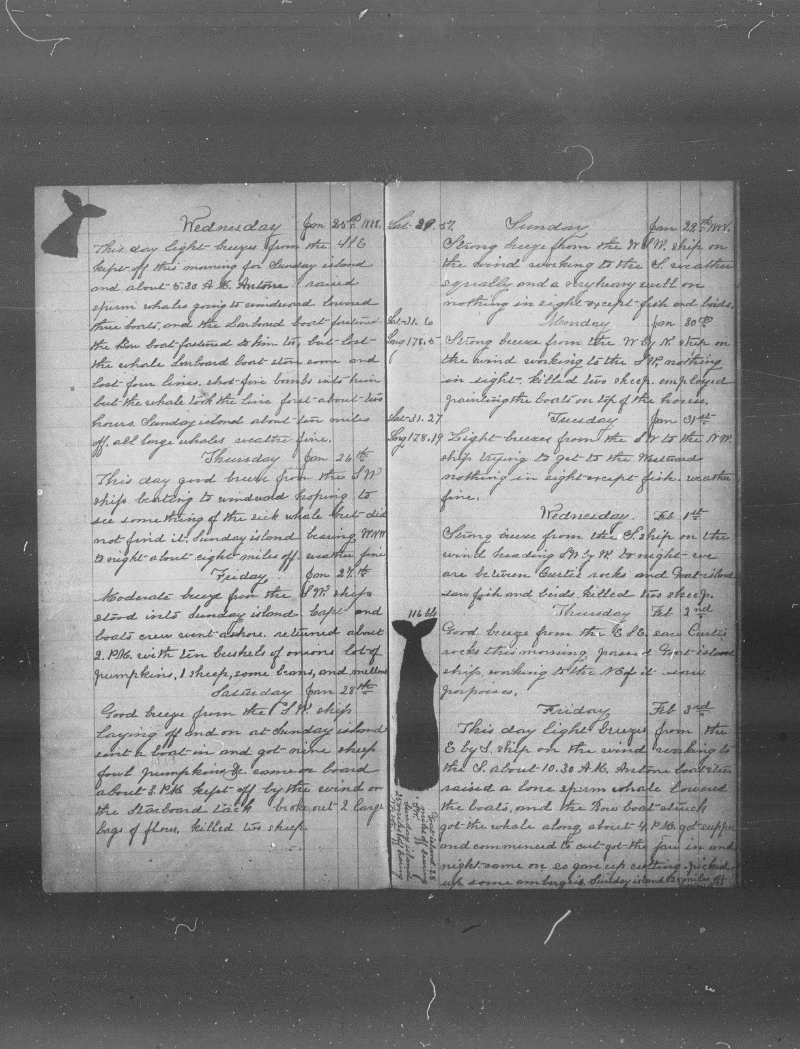 Wednesday Jan 25th
This day light breezes from the SSE
kept off this morning for Sunday island
and about 5.30 A.M. Antone raised
sperm whales going to windward lowered
three boats, and the Larboard boat fastened
the Bow boat fastened to him to, but lost
the whale Larboard boat stove some and
lost four lines, shot five bombs into him
but the whale took the line fast about two
hours Sunday island about ten miles
off. all large whales weather fine.
Thursday Jan 26th
This day good breeze from the SW
ship beating to windward hoping to
see something of the sick whale but did
not find it. Sunday island bearing WNW
to night about eight miles off. weather fine
Friday Jan 27th
Moderate breeze from the SW. ship
stood into Sunday island. Capt and
boats crew went ashore. returned about
2. P.M. with ten bushels of onions lot of
pumpkins, 1 sheep, some beans, and mellons
Saturday Jan 28th
Good breeze from the SW. ship
laying off and on at Sunday island
sent a boat in and got nine sheep
fowl pumpkins &c. came on board
about 3 P.M. kept off by the wind on
the Starboard tack broke out 2 large
bags of flour, killed two sheep.
Lat 29.57. Sunday Jan 29th
Strong breeze from the WSW. ship on
the wind working to the S. weather
squally and a very heavy swell on
nothing in sight except fish and birds.
Monday Jan 30th
Lat-31.6
Long 178.5
Strong breeze from the W by N. ship on
the wind working to the SW. nothing
in sight. killed two sheep. employed
painting the boats on top of the house.
Tuesday Jan 31st
Lat-31.27
Long 178.19
Light breezes from the SW to the NW.
ship trying to get to the Westward
nothing in sight except fish. weather
fine.
Wednesday. Feb 1st
Strong breeze from the S. ship on the
wind heading SW by W. to night we
are between Curtis rocks and Goat island
saw fish and birds. killed two sheep.
Thursday Feb 2nd
Good breeze from the ESE. saw Curtis
rocks this morning, passed Goat island
ship working to the N of it. saw
porpoises.
Friday Feb 3rd
116 bbl
This day light breeze from the
E by S. ship on the wind working to
the S. about 10.30 A.M. Antone boatsteer
raised a lone sperm whale lowered
the boats, and the Bow boat struck
got the whale along about 4, P.M. got supper
and commenced to cut got the jaw in and
night came on so gave up cutting. picked
up some ambergris. Sunday island 25 miles off
Goat island 25
miles off bearing
Sunday island
25 miles off bearing